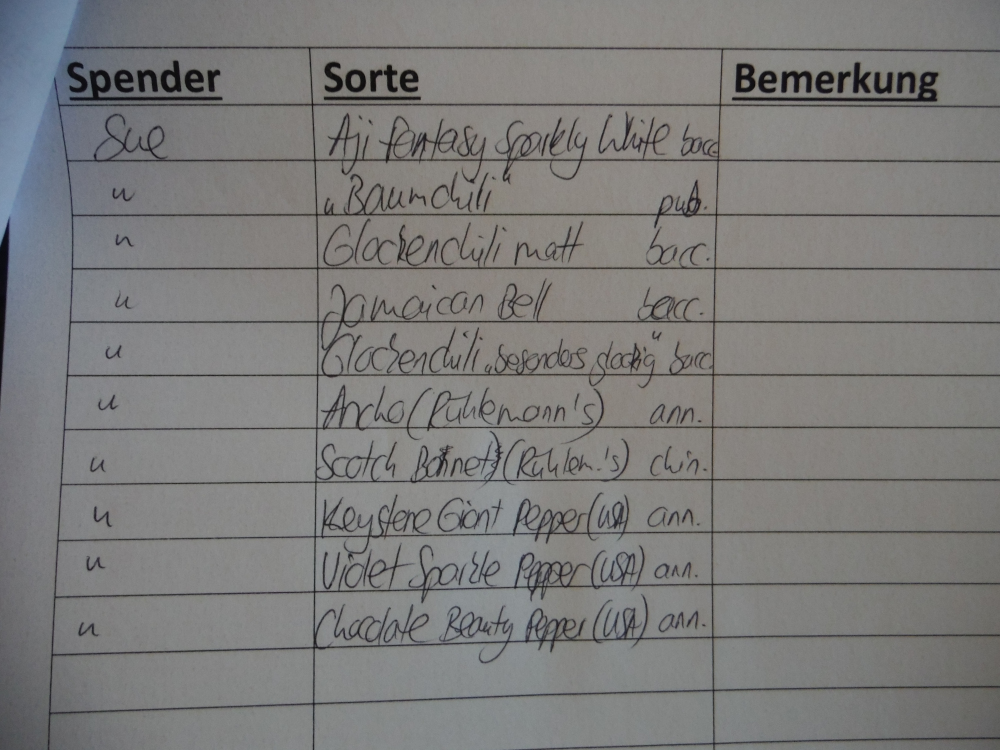 Spender Sorte Bemerkung
Sue Aji Fantasy Sparkly White bacc
" „Baumchili“ pub.
" Glockenchili matt bacc.
" Jamaican Bell bacc.
" Glockenchili „besonders glockig“ bacc
" Ancho (Rühlemann's) ann.
" Scotch Bonnet (Rühlem.'s) chin.
" Keystone Giant Pepper (USA) ann.
" Violet Sparkle Pepper (USA) ann.
" Choclate Beauty Pepper (USA) ann.